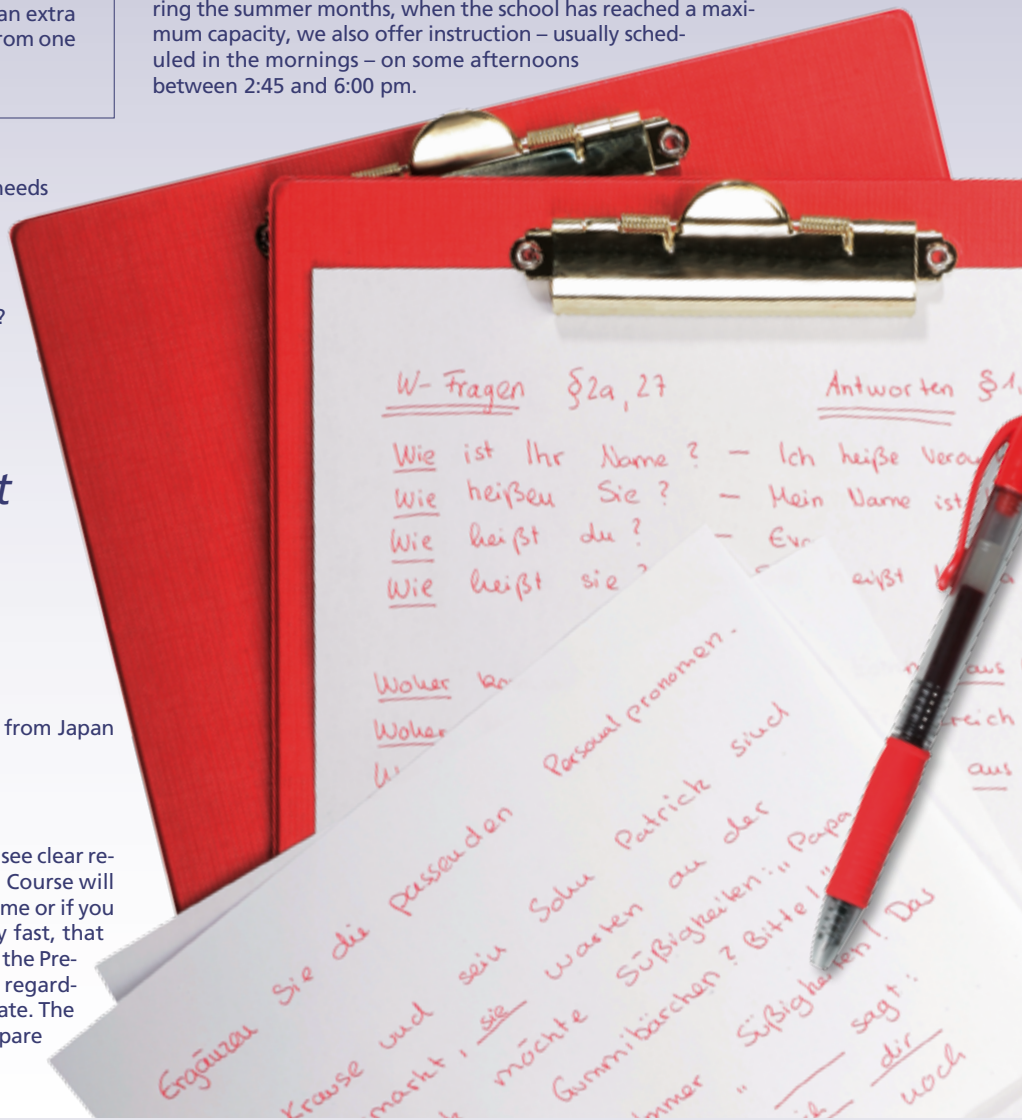 an extra
rom one
ring the summer months, when the school has reached a maxi-
mum capacity, we also offer instruction – usually sched-
uled in the mornings – on some afternoons
between 2:45 and 6:00 pm.
needs
?
t
from Japan
see clear re-
Course will
me or if you
y fast, that
the Pre-
regard-
ate. The
pare
W-Fragen §2a, 27 Antworten §1,
Wie ist Ihr Name? – Ich heiße
Wie heißen Sie? – Mein Name ist
Wie heißt du? –
Wie heißt sie? eißt
Woher
Woher reich
aus
aus
Ergänzen Sie die passenden Personalpronomen.
Krause und sein Sohn Patrick sind
markt, sie warten an der
möchte Süßigkeiten: „Papa
Gummibärchen? Bitte!"
mmer Süßigkeiten! Das
„ ____ sagt:
dir
noch